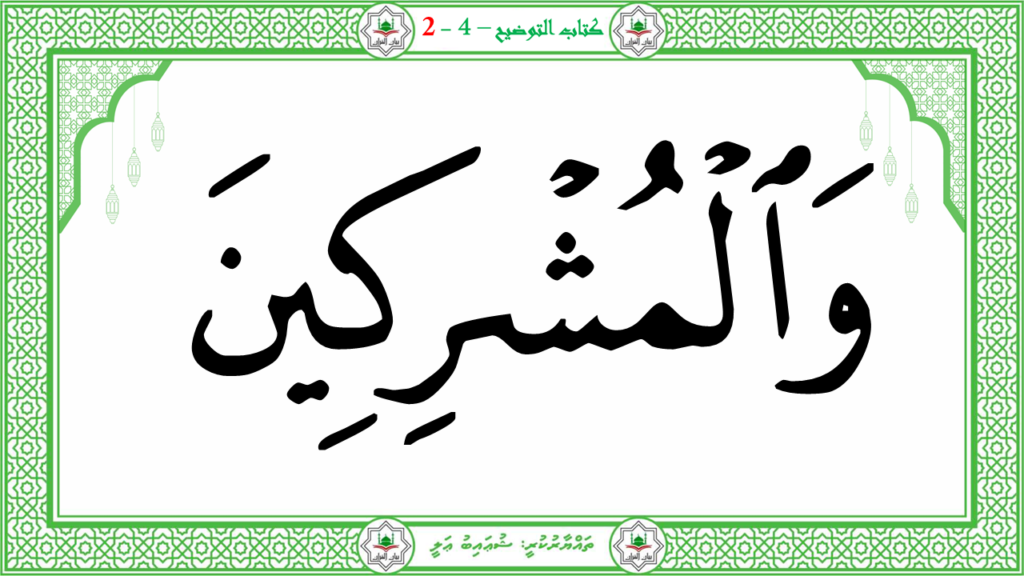 كتاب التوضيح – 4 - 2
وَٱلْمُشْرِكِينَ
ތައްޔާރުކުރީ: ޝުޢައިބު ޢަލީ